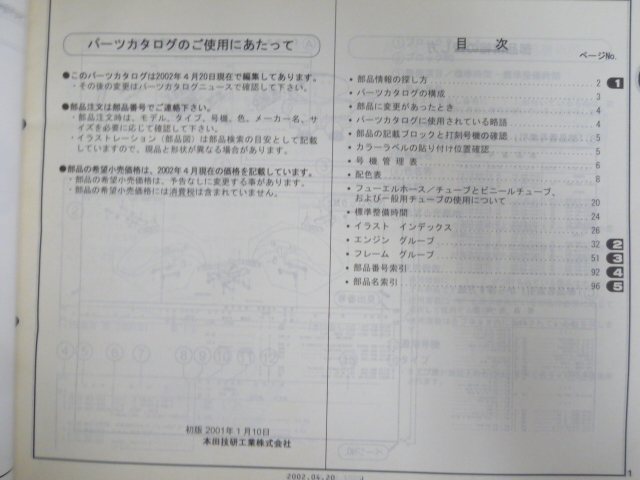 パーツカタログのご使用にあたって
●このパーツカタログは2002年4月20日現在で編集してあります。
・その後の変更はパーツカタログニュースで確認して下さい。
●部品注文は部品番号でご連絡下さい。
・部品注文時は、モデル、タイプ、号機、色、メーカー名、サ
イズを必要に応じて確認して下さい。
・イラストレーション（部品図）は部品検索の目安として記載
していますので、現品と形状が異なる場合があります。
●部品の希望小売価格は、2002年4月現在の価格を記載しています。
・部品の希望小売価格は、予告なしに変更する事があります。
・部品の希望小売価格には消費税は含まれていません。
初版 2001年1月10日
本田技研工業株式会社
目 次
ページNo.
・部品情報の探し方 2 1
・パーツカタログの構成 3
・部品に変更があったとき 4
・パーツカタログに使用されている略語 4
・部品の記載ブロックと打刻号機の確認 5
・カラーラベルの貼り付け位置確認 5
・号 機 管 理 表 6
・配色表 8
・フューエルホース／チューブとビニールチューブ、
および一般用チューブの使用について 20
・標準整備時間 24
・イラスト インデックス 26
・エンジン グループ 32 2
・フレーム グループ 51 3
・部品番号索引 92 4
・部品名索引 96 5
2002.04.20
1